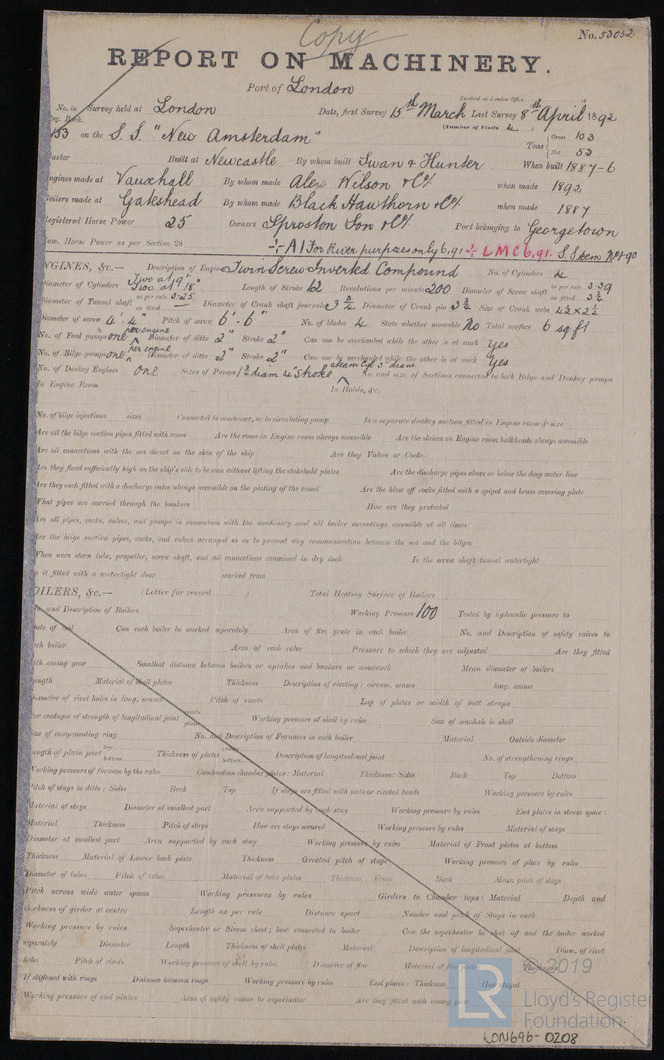 Copy
No. 53052
REPORT ON MACHINERY.
Port of London
Received at London Office 18
No. in Survey held at London Date, first Survey 15th March Last Survey 8th April 1892
Reg. Book. (Number of Visits 4)
153 on the S.S. "New Amsterdam" Tons Gross 103 Net 53
Master Built at Newcastle By whom built Swan & Hunter When built 1887-6
Engines made at Vauxhall By whom made Alex Wilson & Co. when made 1892
Boilers made at Gateshead By whom made Black Hawthorn & Co. when made 1887
Registered Horse Power 25 Owners Sproston Son & Co. Port belonging to Georgetown
Nom. Horse Power as per Section 28 A1 For River purposes only 6,91 LMC 6,91.
ENGINES, &c.— Description of Engines Twin Screw Inverted Compound No. of Cylinders 4
Diameter of Cylinders Two at 9" Two at 18" Length of Stroke 12 Revolutions per minute 200 Diameter of Screw shaft as per rule 3.39 as fitted
Diameter of Tunnel shaft as per rule 3.25 as fitted — Diameter of Crank shaft journals 3 3/4 Diameter of Crank pin 3 3/4 Size of Crank webs
Diameter of screw 4'.4" Pitch of screw 6'.6" No. of blades 4 State whether moveable No Total surface 6 sq ft
No. of Feed pumps one per engine Diameter of ditto 2" Stroke 2" Can one be overhauled while the other is at work Yes
No. of Bilge pumps one per engine Diameter of ditto 2" Stroke 2" Can one be overhauled while the other is at work Yes
No. of Donkey Engines one Sizes of Pumps 1 3/4 diam 4" Stroke Steam Cyl 3" diam. No. and size of Suctions connected to both Bilge and Donkey pumps
In Engine Room In Holds, &c.
No. of bilge injections sizes Connected to condenser, or to circulating pump Is a separate donkey suction fitted in Engine room & size
Are all the bilge suction pipes fitted with roses Are the roses in Engine room always accessible Are the sluices on Engine room bulkheads always accessible
Are all connections with the sea direct on the skin of the ship Are they Valves or Cocks
Are they fixed sufficiently high on the ship's side to be seen without lifting the stokehold plates Are the discharge pipes above or below the deep water line
Are they each fitted with a discharge valve always accessible on the plating of the vessel Are the blow off cocks fitted with a spigot and brass covering plate
What pipes are carried through the bunkers How are they protected
Are all pipes, cocks, valves, and pumps in connection with the machinery and all boiler mountings accessible at all times
Are the bilge suction pipes, cocks, and valves arranged so as to prevent any communication between the sea and the bilges
When were stern tube, propeller, screw shaft, and all connections examined in dry dock Is the screw shaft tunnel watertight
is it fitted with a watertight door worked from
BOILERS, &c.— (Letter for record ) Total Heating Surface of Boilers
No. and Description of Boilers Working Pressure 100 Tested by hydraulic pressure to
Date of test Can each boiler be worked separately Area of fire grate in each boiler No. and Description of safety valves to
each boiler Area of each valve Pressure to which they are adjusted Are they fitted
with easing gear Smallest distance between boilers or uptakes and bunkers or woodwork Mean diameter of boilers
Length Material of shell plates Thickness Description of riveting: circum. seams long. seams
Diameter of rivet holes in long. seams Pitch of rivets Lap of plates or width of butt straps
Per centages of strength of longitudinal joint rivets plate Working pressure of shell by rules Size of manhole in shell
Size of compensating ring No. and Description of Furnaces in each boiler Material Outside diameter
Length of plain part top bottom Thickness of plates crown bottom Description of longitudinal joint No. of strengthening rings
Working pressure of furnace by the rules Combustion chamber plates: Material Thickness: Sides Back Top Bottom
Pitch of stays to ditto: Sides Back Top If stays are fitted with nuts or riveted heads Working pressure by rules
Material of stays Diameter at smallest part Area supported by each stay Working pressure by rules End plates in steam space:
Material Thickness Pitch of stays How are stays secured Working pressure by rules Material of stays
Diameter at smallest part Area supported by each stay Working pressure by rules Material of Front plates at bottom
Thickness Material of Lower back plate Thickness Greatest pitch of stays Working pressure of plate by rules
Diameter of tubes Pitch of tubes Material of tube plates Thickness: Front Back Mean pitch of stays
Pitch across wide water spaces Working pressures by rules Girders to Chamber tops: Material Depth and
thickness of girder at centre Length as per rule Distance apart Number and pitch of Stays in each
Working pressure by rules Superheater or Steam chest; how connected to boiler Can the superheater be shut off and the boiler worked
separately Diameter Length Thickness of shell plates Material Description of longitudinal joint Diam. of rivet
holes Pitch of rivets Working pressure of shell by rules Diameter of flue Material of flue plates Thickness
If stiffened with rings Distance between rings Working pressure by rules End plates: Thickness How stayed
Working pressure of end plates Area of safety valves to superheater Are they fitted with easing gear
© 2019
LR
Lloyd's Register
Foundation
LON696-0208